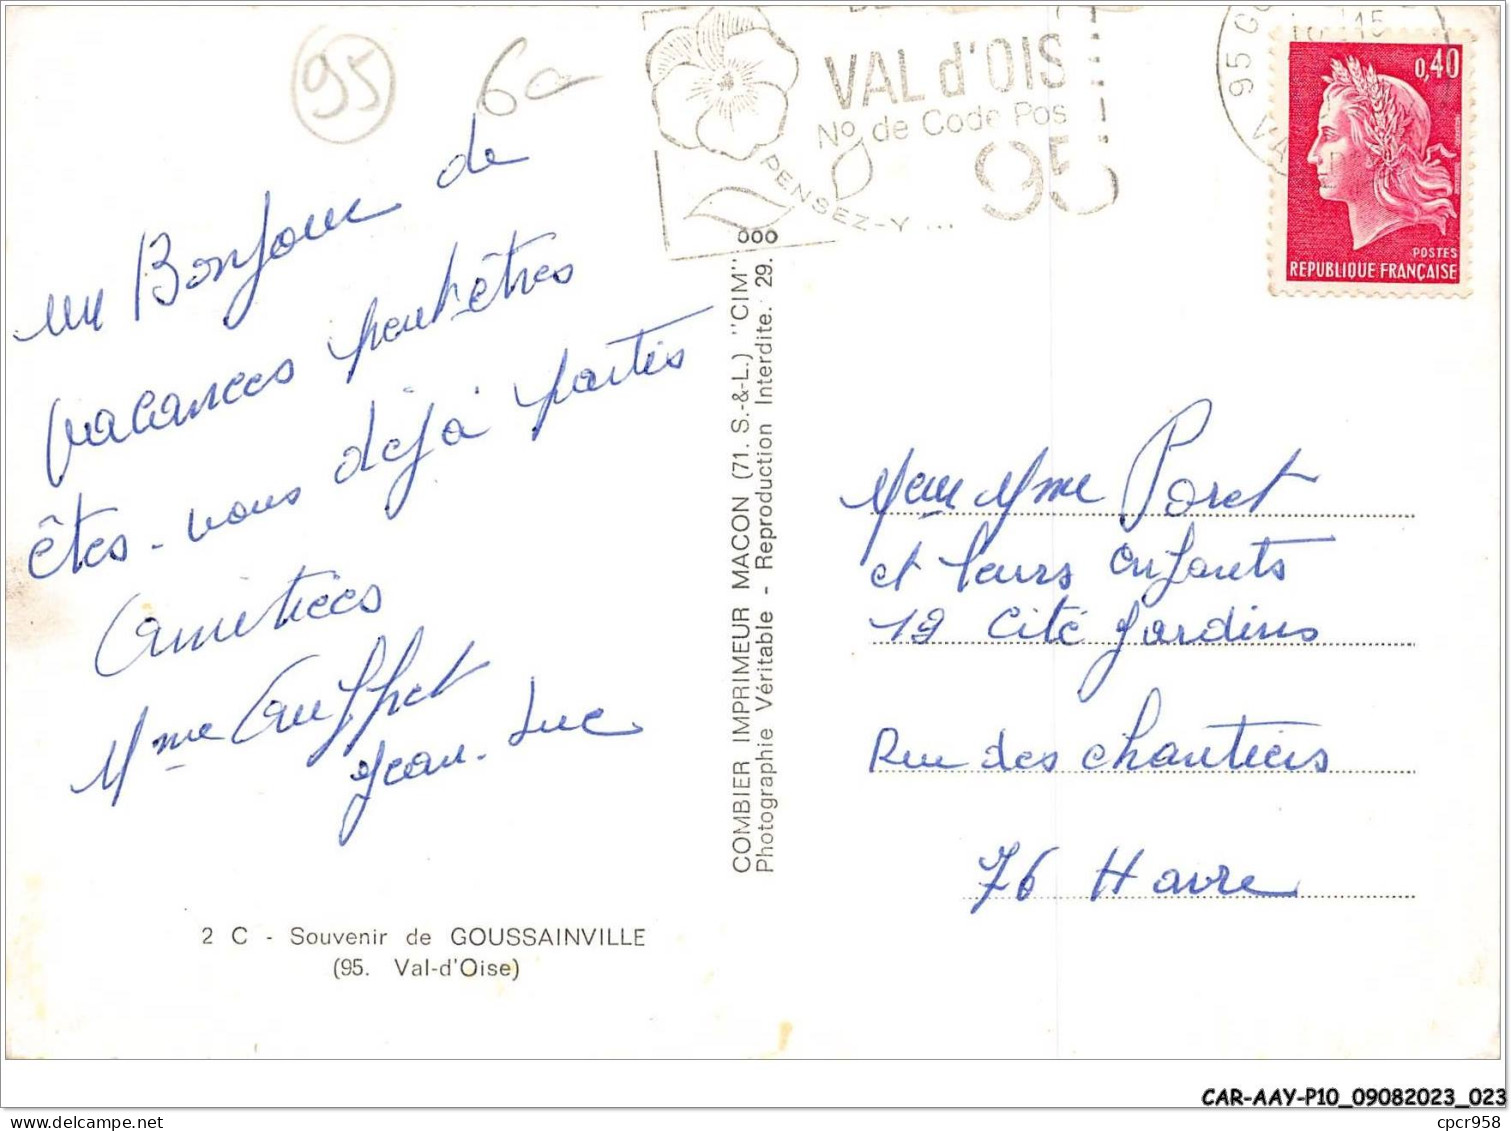 95
6a
VAL d'OIS
No de Code Pos
95
PENSEZ-Y ...
95 GO
15
VA
0,40
POSTES
REPUBLIQUE FRANÇAISE
un Bonjour de
vacances peut-êtres
êtes-vous déjà partis
Amitiées
Mme Cauffpet
Jean-Luc
COMBIER IMPRIMEUR MACON (71. S.-&-L.) "CIM" 000
Photographie Véritable - Reproduction Interdite. 29.
M et Mme Poret
et leurs enfants
19 Cité Jardins
Rue des chantiers
76 Havre
2 C - Souvenir de GOUSSAINVILLE
(95. Val-d'Oise)
CAR-AAY-P10_09082023_023
cpcr958